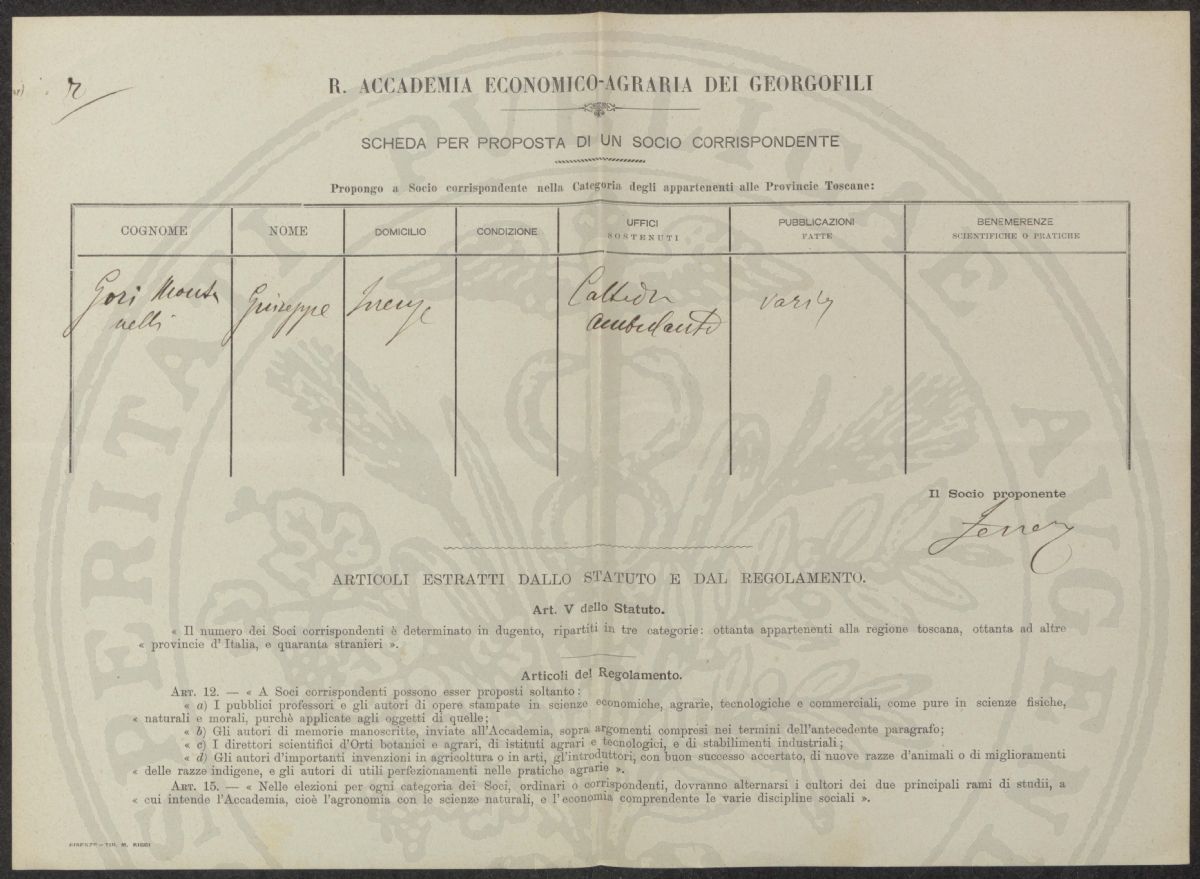 R. ACCADEMIA ECONOMICO-AGRARIA DEI GEORGOFILI
SCHEDA PER PROPOSTA DI UN SOCIO CORRISPONDENTE
Propongo a Socio corrispondente nella Categoria degli appartenenti alle Provincie Toscane:
COGNOME NOME DOMICILIO CONDIZIONE UFFICI SOSTENUTI PUBBLICAZIONI FATTE BENEMERENZE SCIENTIFICHE O PRATICHE
Gori Monta Giuseppe Firenze Cattedra varie
nelli ambulante
Il Socio proponente
ARTICOLI ESTRATTI DALLO STATUTO E DAL REGOLAMENTO.
Art. V dello Statuto.
« Il numero dei Soci corrispondenti è determinato in dugento, ripartiti in tre categorie: ottanta appartenenti alla regione toscana, ottanta ad altre
« provincie d'Italia, e quaranta stranieri ».
Articoli del Regolamento.
ART. 12. — « A Soci corrispondenti possono esser proposti soltanto:
« a) I pubblici professori e gli autori di opere stampate in scienze economiche, agrarie, tecnologiche e commerciali, come pure in scienze fisiche,
« naturali e morali, purchè applicate agli oggetti di quelle;
« b) Gli autori di memorie manoscritte, inviate all'Accademia, sopra argomenti compresi nei termini dell'antecedente paragrafo;
« c) I direttori scientifici d'Orti botanici e agrari, di istituti agrari e tecnologici, e di stabilimenti industriali;
« d) Gli autori d'importanti invenzioni in agricoltura o in arti, gl'introduttori, con buon successo accertato, di nuove razze d'animali o di miglioramenti
« delle razze indigene, e gli autori di utili perfezionamenti nelle pratiche agrarie ».
ART. 15. — « Nelle elezioni per ogni categoria dei Soci, ordinari o corrispondenti, dovranno alternarsi i cultori dei due principali rami di studii, a
« cui intende l'Accademia, cioè l'agronomia con le scienze naturali, e l'economia comprendente le varie discipline sociali ».
FIRENZE - TIP. M. RICCI